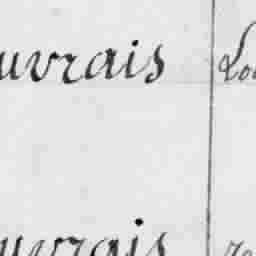 uvrais Lou
uvrais